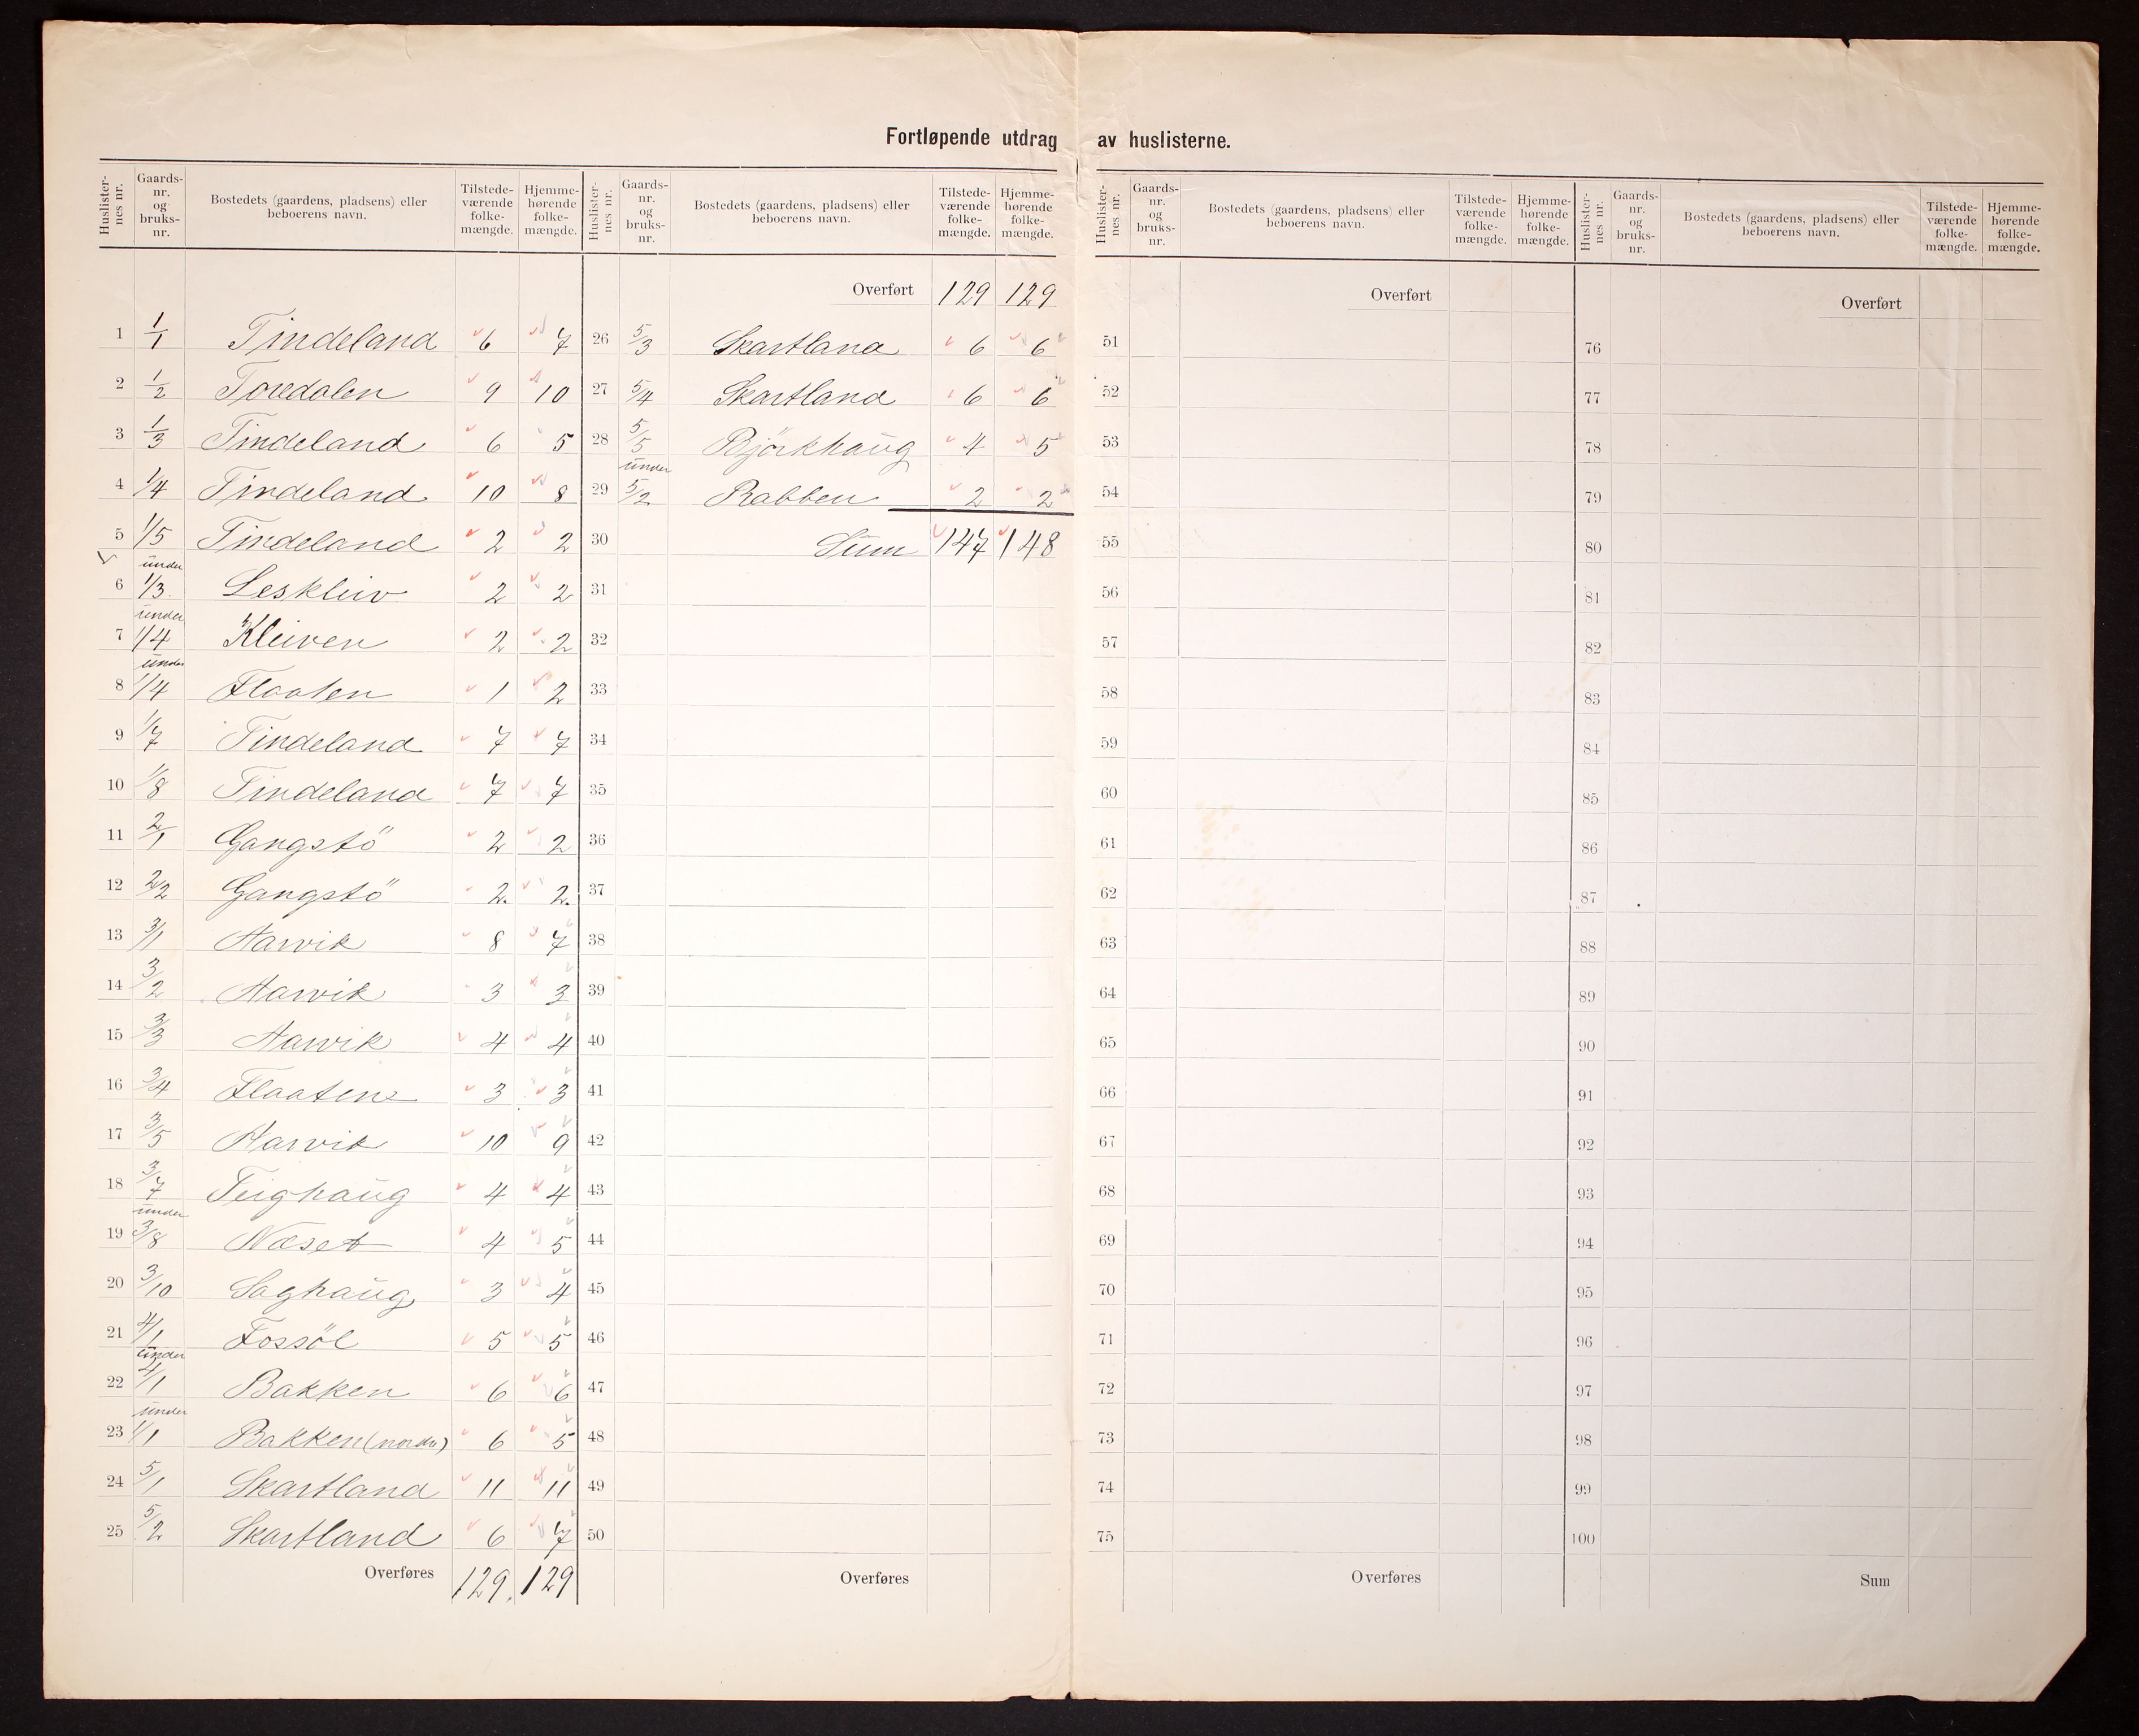 Fortløpende utdrag av huslisterne.
Huslisternes nr. Gaards-nr. og bruks-nr. Bostedets (gaardens, pladsens) eller beboerens navn. Tilstede-værende folke-mængde. Hjemme-hørende folke-mængde.
1 1/1 Tindeland 6 7
2 1/2 Toredalen 9 10
3 1/3 Tindeland 6 5
4 1/4 Tindeland 10 8
5 1/5 Tindeland 2 2
6 under 1/3 Leskleiv 2 2
7 under 1/4 Kleiven 2 2
8 under 1/4 Flaaten 1 2
9 1/7 Tindeland 7 7
10 1/8 Tindeland 7 7
11 2/1 Gangstö 2 2
12 2/2 Gangstö 2. 2.
13 3/1 Aarvik 8 7
14 3/2 Aarvik 3 3
15 3/3 Aarvik 4 4
16 3/4 Flaaten 3 3
17 3/5 Aarvik 10 9
18 3/7 Teighaug 4 4
19 under 3/8 Næset 4 5
20 3/10 Saghaug 3 4
21 4/1 Fossöl 5 5
22 under 4/1 Bakken 6 6
23 under 1/1 Bakken (nordre) 6 5
24 5/1 Skartland 11 11
25 5/2 Skartland 6 7
Overføres 129. 129
Huslisternes nr. Gaards-nr. og bruks-nr. Bostedets (gaardens, pladsens) eller beboerens navn. Tilstede-værende folke-mængde. Hjemme-hørende folke-mængde.
Overført 129 129
26 5/3 Skartland 6 6
27 5/4 Skartland 6 6
28 5/5 Björkhaug 4 5
29 under 5/2 Rabben 2 2
30 Sum 147 148
31
32
33
34
35
36
37
38
39
40
41
42
43
44
45
46
47
48
49
50
Overføres
Huslisternes nr. Gaards-nr. og bruks-nr. Bostedets (gaardens, pladsens) eller beboerens navn. Tilstede-værende folke-mængde. Hjemme-hørende folke-mængde.
Overført
51
52
53
54
55
56
57
58
59
60
61
62
63
64
65
66
67
68
69
70
71
72
73
74
75
Overføres
Huslisternes nr. Gaards-nr. og bruks-nr. Bostedets (gaardens, pladsens) eller beboerens navn. Tilstede-værende folke-mængde. Hjemme-hørende folke-mængde.
Overført
76
77
78
79
80
81
82
83
84
85
86
87
88
89
90
91
92
93
94
95
96
97
98
99
100
Sum